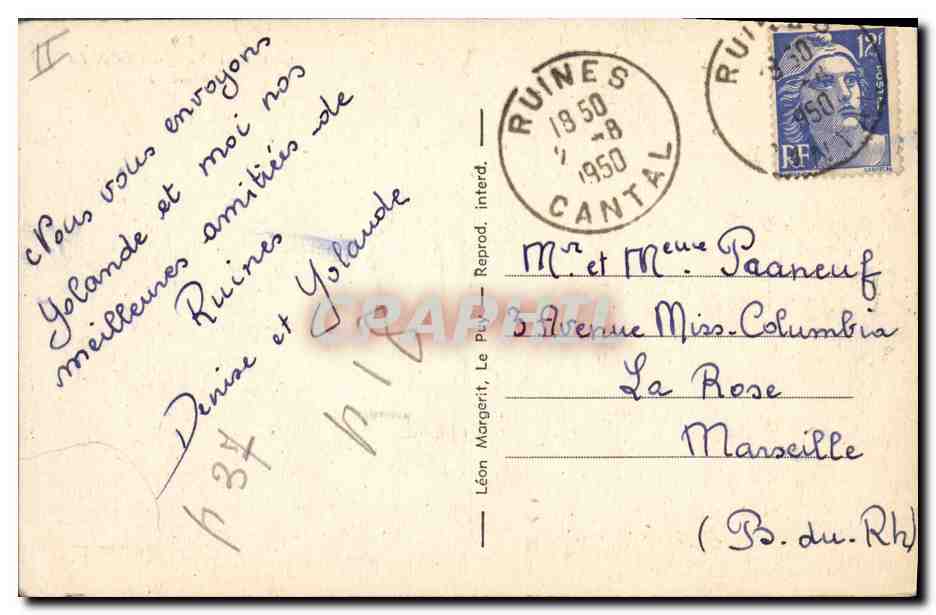 II
Nous vous envoyons
Yolande et moi nos
meilleures amitiés de
Ruines
Denise et Yolande
p 37
Léon Margerit, Le Puy — Reprod. interd.
RUINES
18 50
-8
1950
CANTAL
RUINES
12F
POSTES
RF
1950
Mr et Meme Paaneuf
3 Avenue Miss-Columbia
La Rose
Marseille
(B. du. Rh)
CPAPHIL